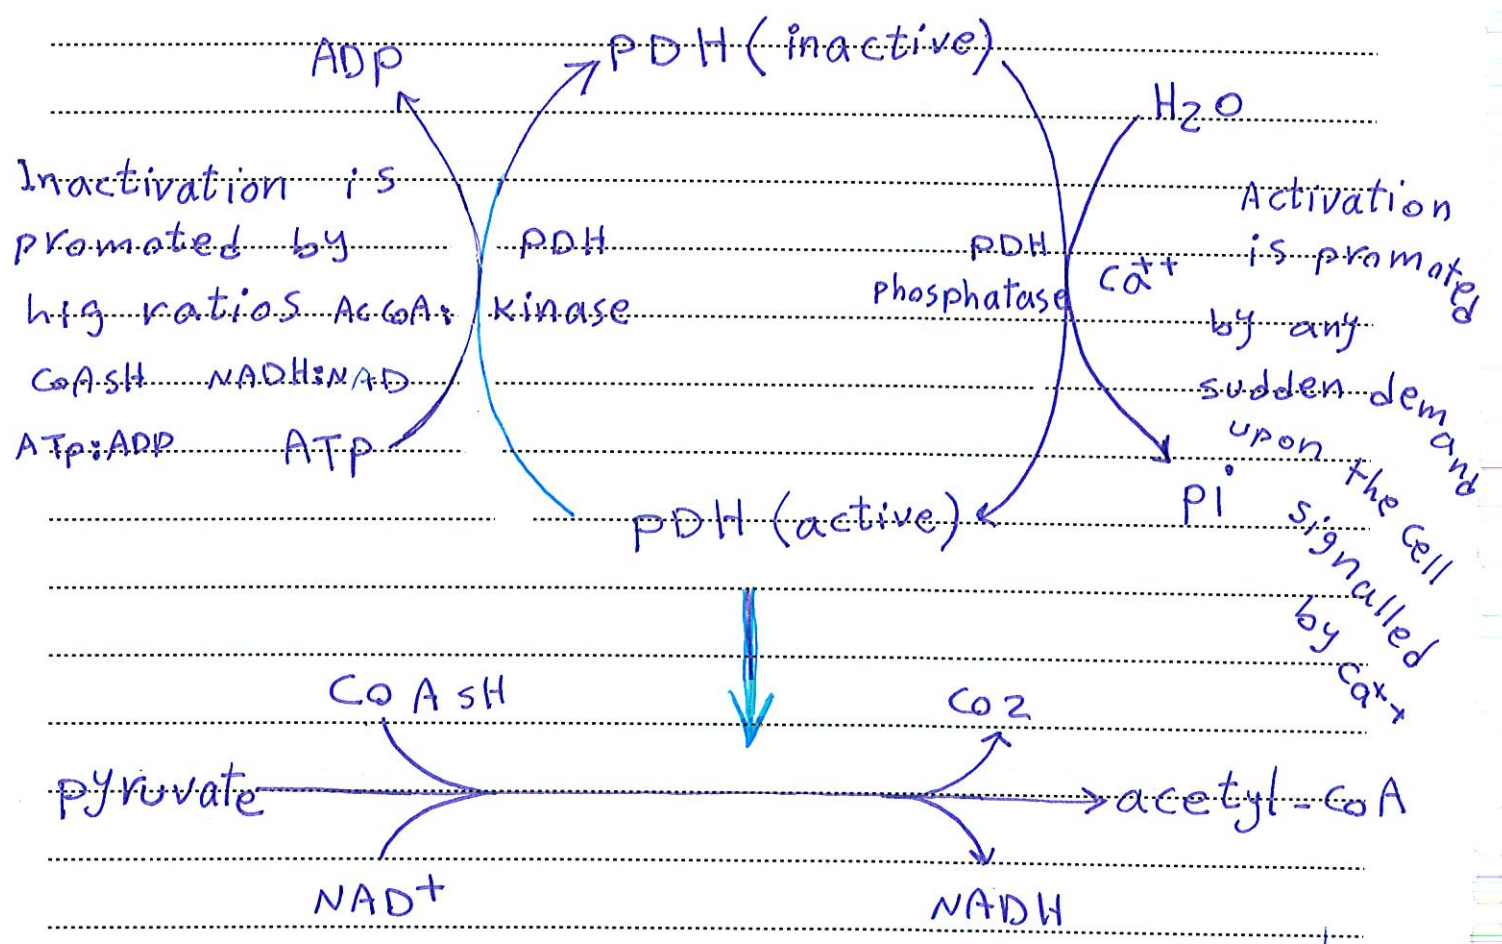 ADP
PDH (inactive)
H2O
Inactivation is
promoted by
hig ratios AcCoA:
CoASH NADH:NAD
ATP:ADP
ATP
PDH
kinase
PDH
phosphatase
Ca++
Activation
is promoted
by any
sudden demand
upon the cell
signalled
by Ca++
Pi
PDH (active)
CoASH
CO2
pyruvate
acetyl-CoA
NAD+
NADH